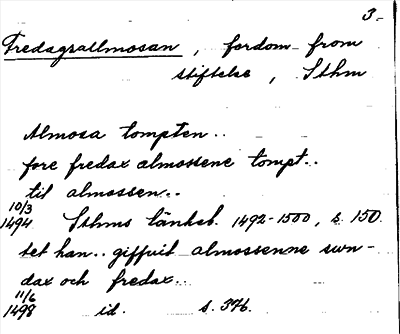 3.
Fredagsallmosan, fordom from
stiftelse, Sthm
Almosa tompten..
fore fredax almossene tompt..
til almossen..
10/3
1494 Sthms tänkeb. 1492-1500, s. 150.
tet han.. giffuit almossenne swn-
dax och fredax..
11/6
1498 id. s. 376.